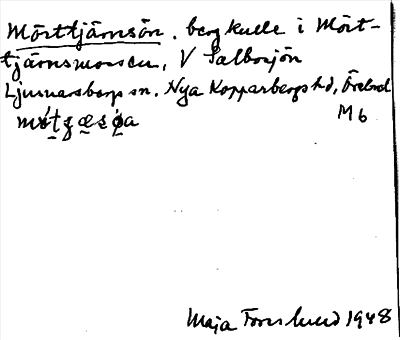 Mörttjärnsön, bergkulle i Mört-
tjärnsmossen, V Salbosjön
Ljusnarsbergs sn. Nya Kopparbergs hd, Örebro l
M 6
Maja Forslund 1948